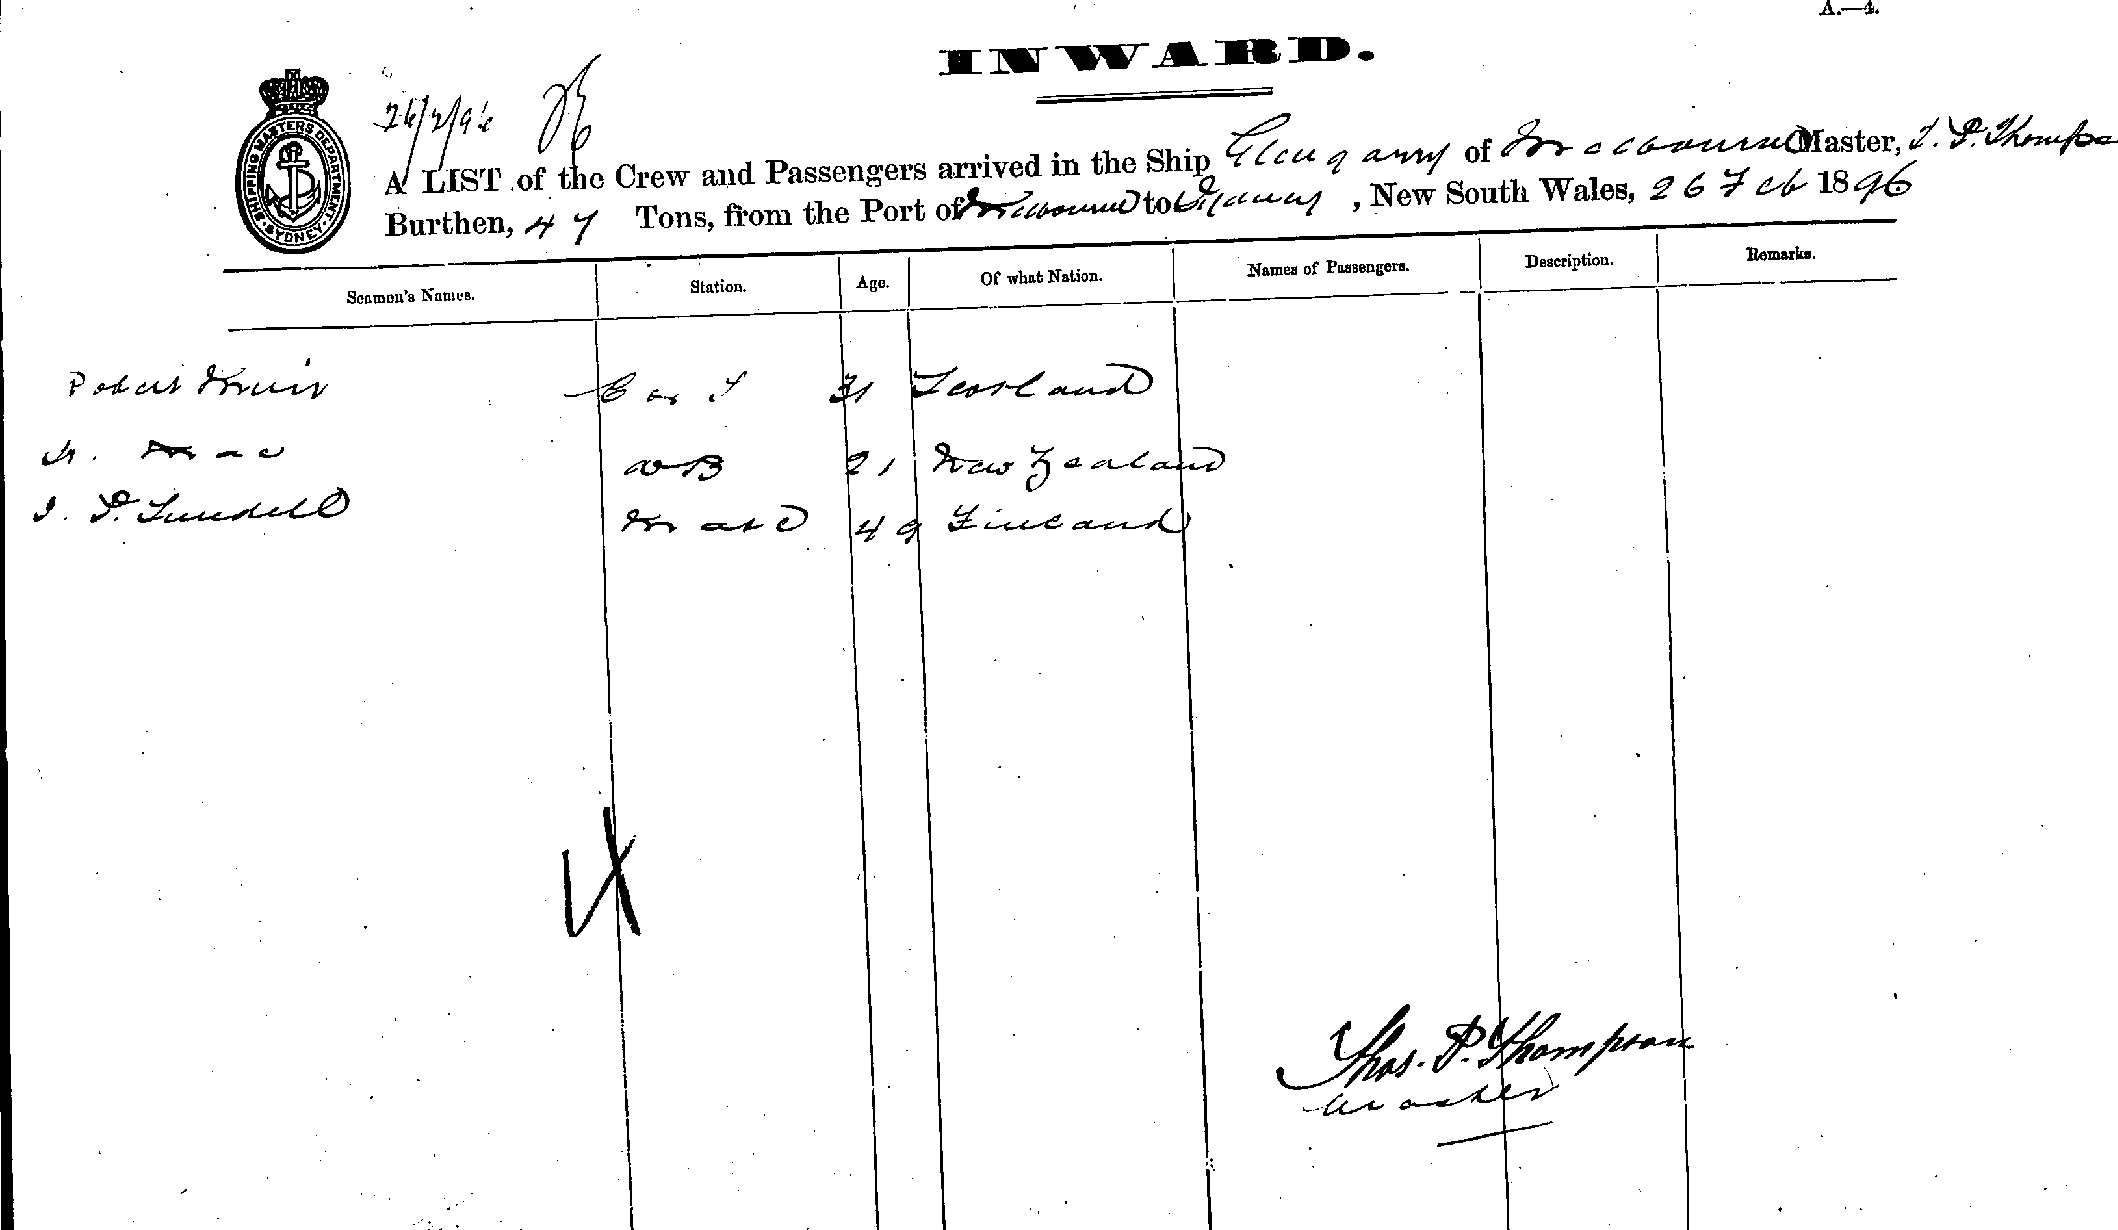 A.—4.
INWARD.
SHIPPING MASTERS DEPARTMENT
SYDNEY
26/2/96
A LIST of the Crew and Passengers arrived in the Ship Glengarry of Melbourne Master, T. P. Thompso
Burthen, 47 Tons, from the Port of Melbourne to Sydney, New South Wales, 26 Feb 1896
Seamen's Names. Station. Age. Of what Nation. Names of Passengers. Description. Remarks.
Robert Muir 31 Scotland
AB 21 New Zealand
J. P. Lundell Mate 49 Finland
Thos. P. Thompson
Master